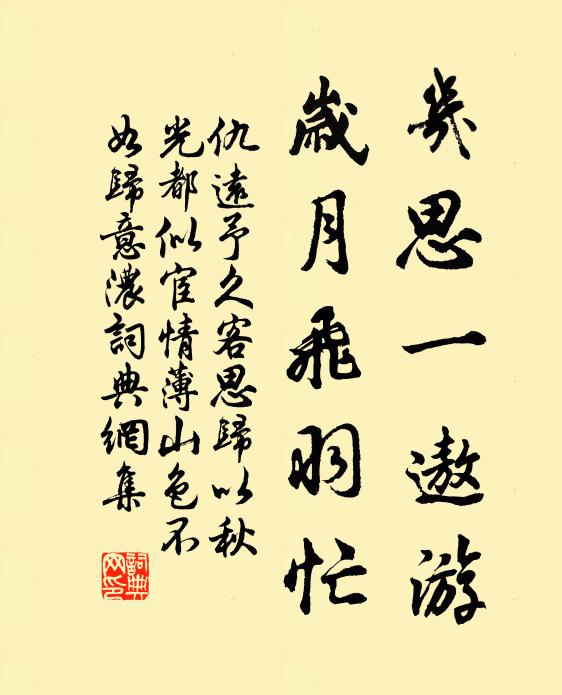 幾思一遨游
歲月飛羽忙
仇遠予久客思歸以秋
光都似宦情薄山色不
如歸意濃詞典網集
詞典網印